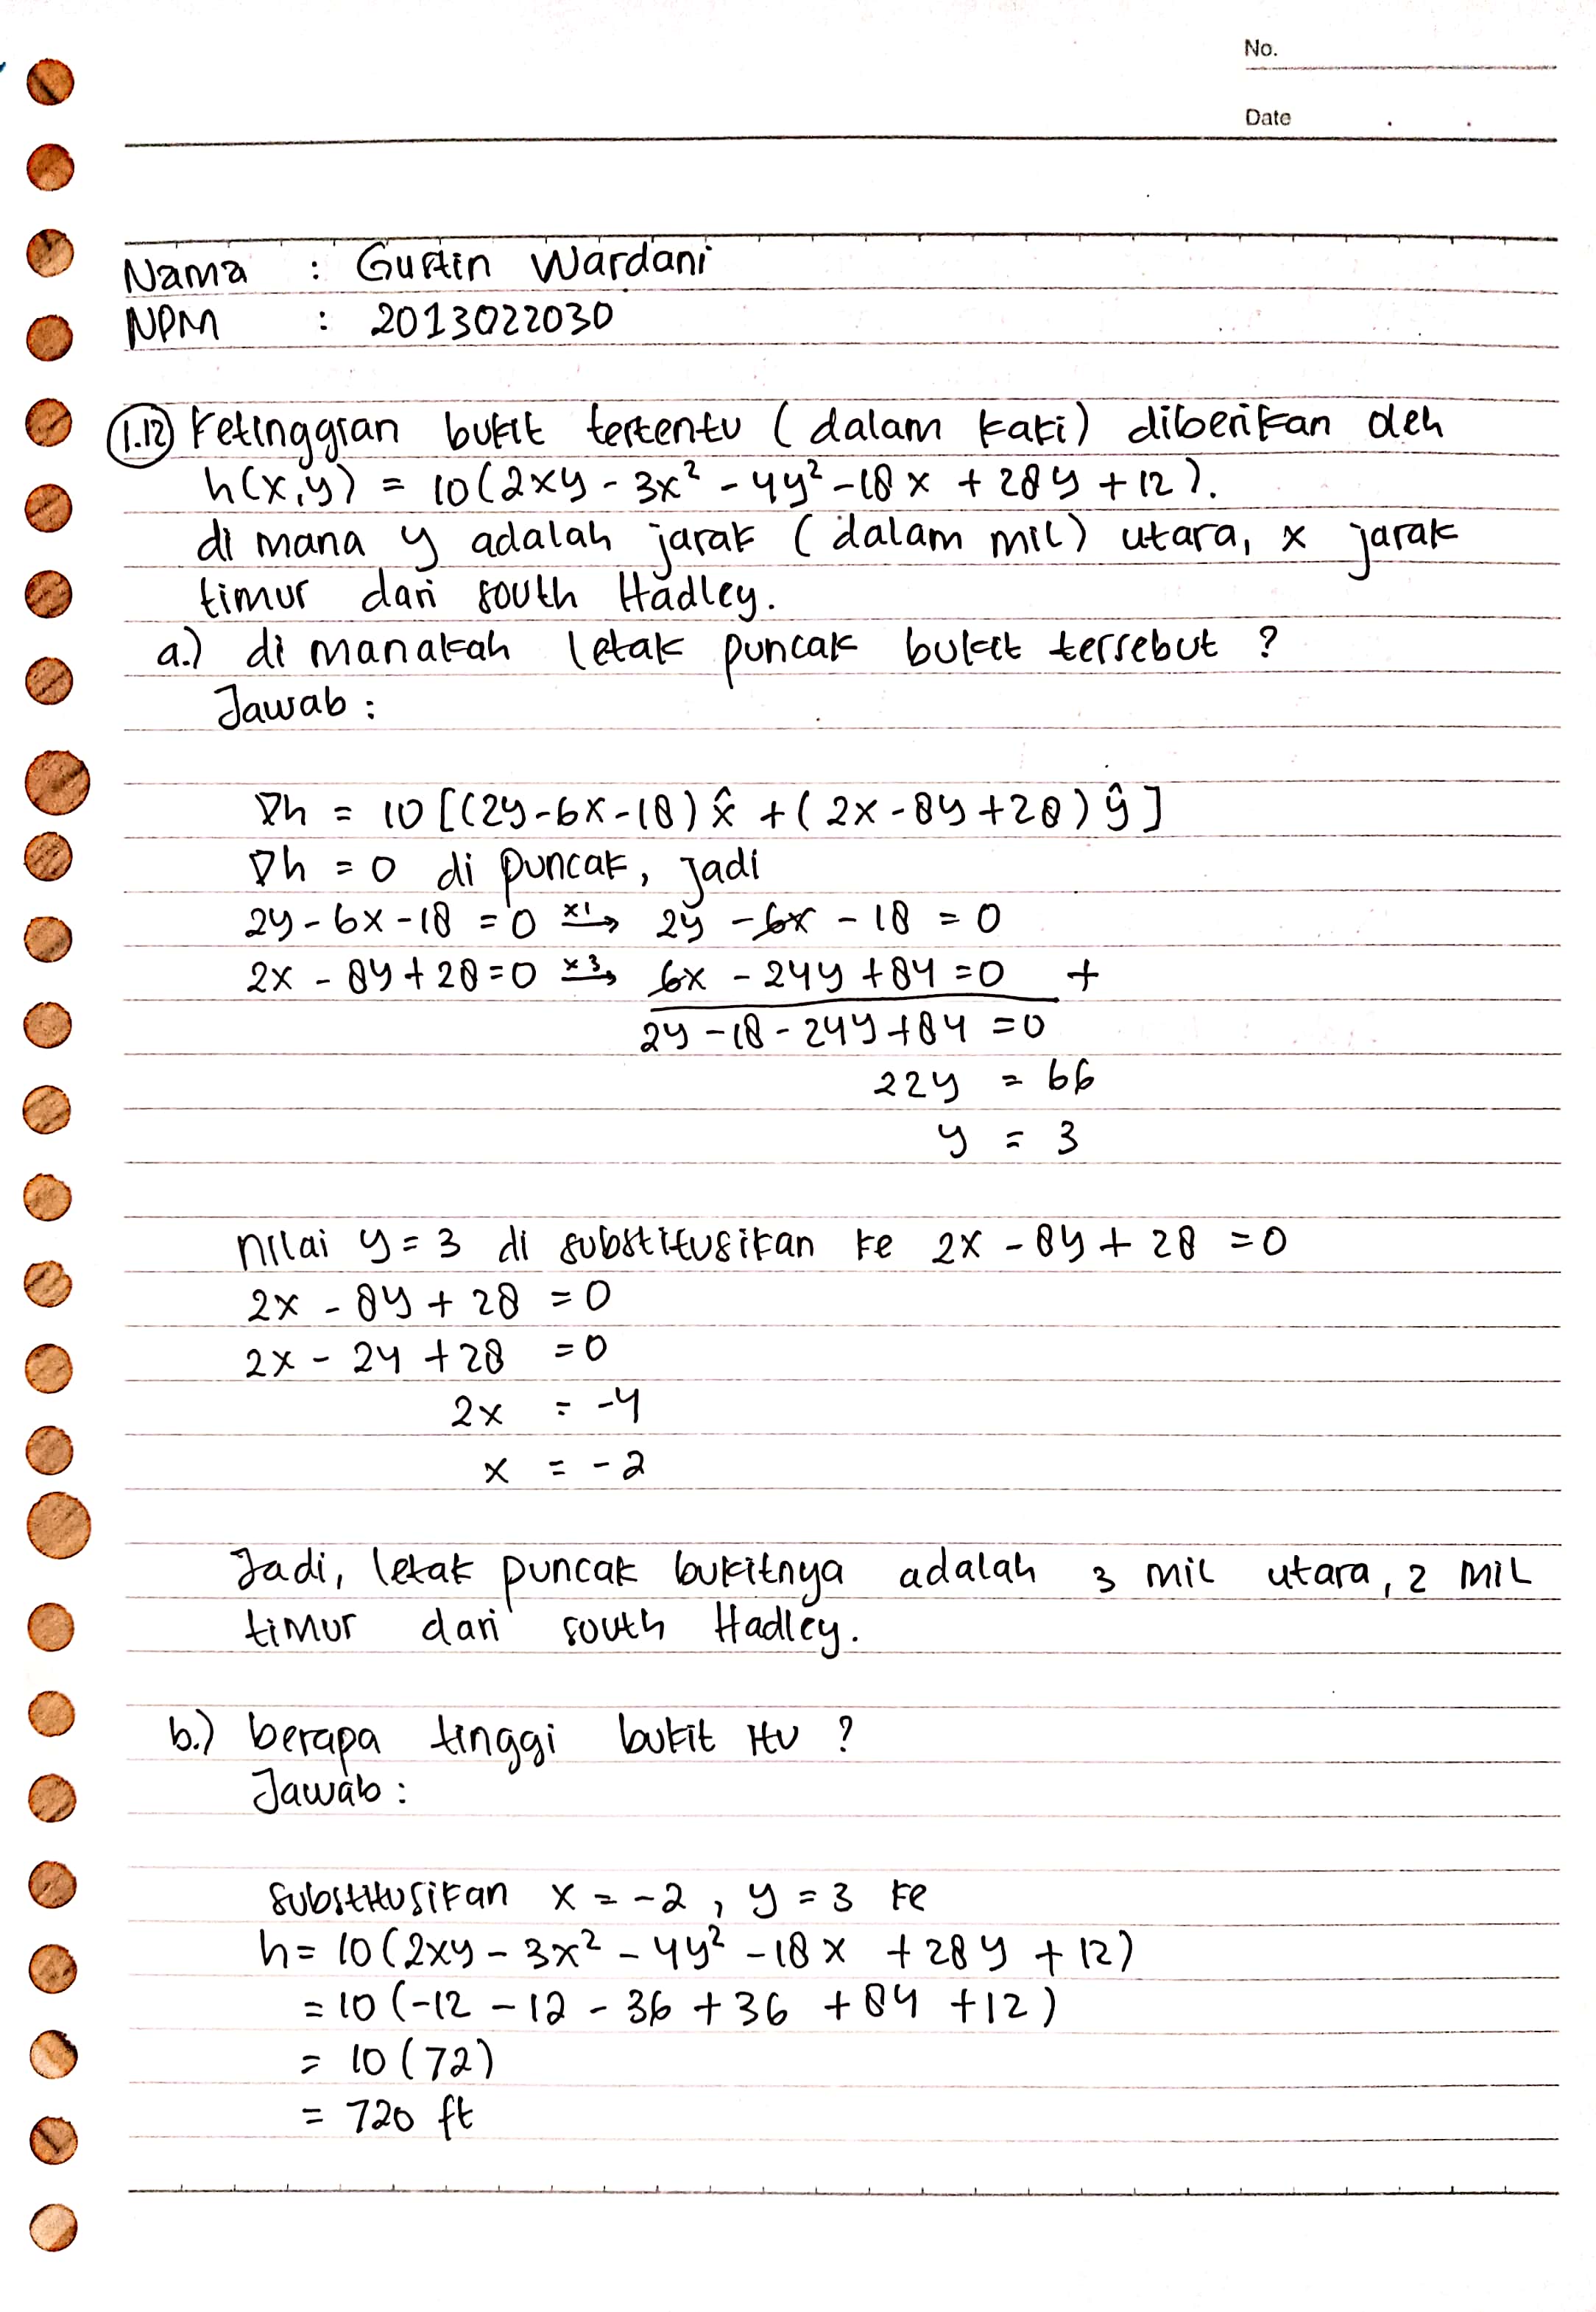 No.
Date
Nama : Gustin Wardani
NPM : 2013022030
1.12 Ketinggian bukit tertentu (dalam kaki) diberikan oleh
h(x,y) = 10(2xy - 3x² - 4y² - 18x + 28y + 12).
di mana y adalah jarak (dalam mil) utara, x jarak
timur dari south Hadley.
a.) di manakah letak puncak bukit tersebut ?
Jawab :
∇h = 10 [(2y-6x-18) x̂ + (2x-8y+28) ŷ]
∇h = 0 di puncak, jadi
2y - 6x - 18 = 0 ×1→ 2y - 6x - 18 = 0
2x - 8y + 28 = 0 ×3→ 6x - 24y + 84 = 0 +
2y - 18 - 24y + 84 = 0
22y = 66
y = 3
nilai y = 3 di substitusikan ke 2x - 8y + 28 = 0
2x - 8y + 28 = 0
2x - 24 + 28 = 0
2x = -4
x = -2
Jadi, letak puncak bukitnya adalah 3 mil utara, 2 mil
timur dari south Hadley.
b.) berapa tinggi bukit itu ?
Jawab :
substitusikan x = -2 , y = 3 ke
h = 10(2xy - 3x² - 4y² - 18x + 28y + 12)
= 10(-12 - 12 - 36 + 36 + 84 + 12)
= 10(72)
= 720 ft